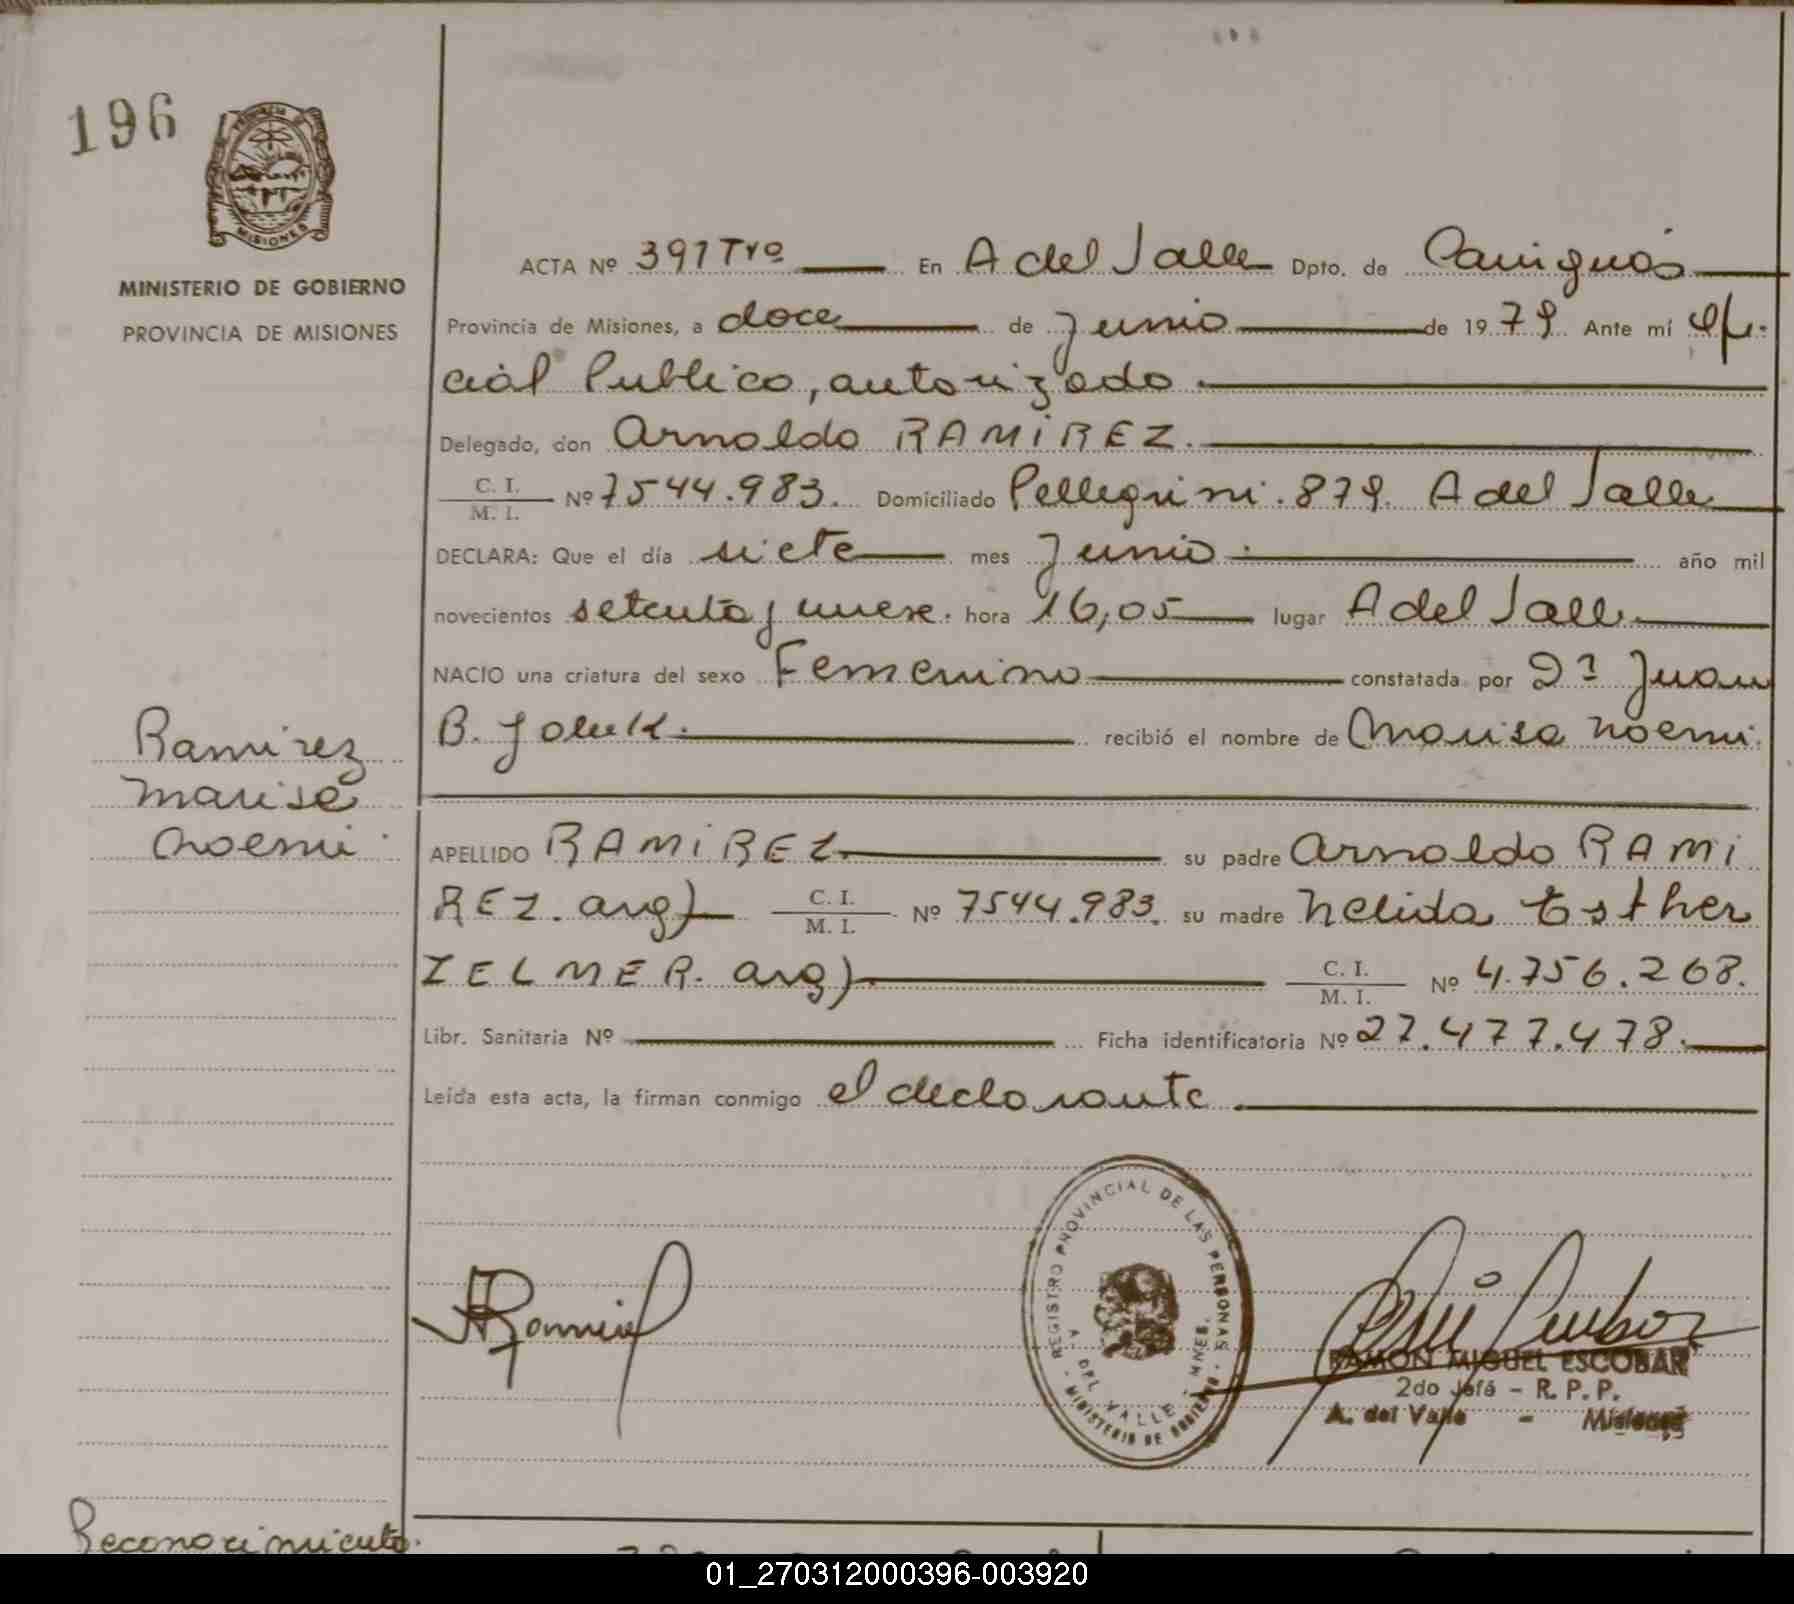 196
PROVINCIA DE
MISIONES
MINISTERIO DE GOBIERNO
PROVINCIA DE MISIONES
Ramirez
Marisa
Noemi
Reconocimiento.
ACTA Nº 391 Tro En A del Valle Dpto. de Cainguás
Provincia de Misiones, a doce de Junio de 1979 Ante mí Ofi-
cial Publico, autorizado.
Delegado, don Arnoldo RAMIREZ.
C. I.
M. I. Nº 7544.983. Domiciliado Pellegrini. 879. A del Valle
DECLARA: Que el día siete mes Junio. año mil
novecientos setenta y nueve. hora 16,05 lugar A del Valle.
NACIO una criatura del sexo Femenino constatada por Dr Juan
B. recibió el nombre de Marisa Noemi.
APELLIDO RAMIREZ su padre Arnoldo RAMI
REZ. arg) C. I.
M. I. Nº 7544.983. su madre Nelida Esther
ZELMER. arg) C. I.
M. I. Nº 4.756.268.
Libr. Sanitaria Nº Ficha identificatoria Nº 27.477.478.
Leída esta acta, la firman conmigo el declarante.
ARamirez
REGISTRO PROVINCIAL DE LAS PERSONAS
A. DEL VALLE - MNES.
MINISTERIO DE GOBIERNO
RAMON MIGUEL ESCOBAR
2do Jefe - R. P. P.
A. del Valle - Misiones
01_270312000396-003920